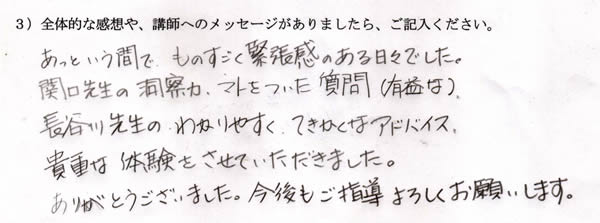 3）全体的な感想や、講師へのメッセージがありましたら、ご記入ください。
あっという間で、ものすごく緊張感のある日々でした。
関口先生の洞察力、マトをついた質問（有益な）、
長谷川先生の、わかりやすく、てきかくなアドバイス、
貴重な体験をさせていただきました。
ありがとうございました。今後もご指導よろしくお願いします。